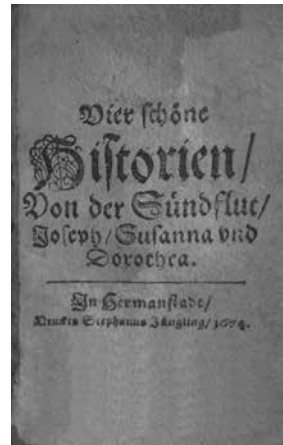 Vier ſchöne
Hiſtorien/
Von der Sündflut/
Joſeph/ Suſanna vnd
Dorothea.
In Hermanſtadt/
Druckts Stephanus Jüngling/ 1674.